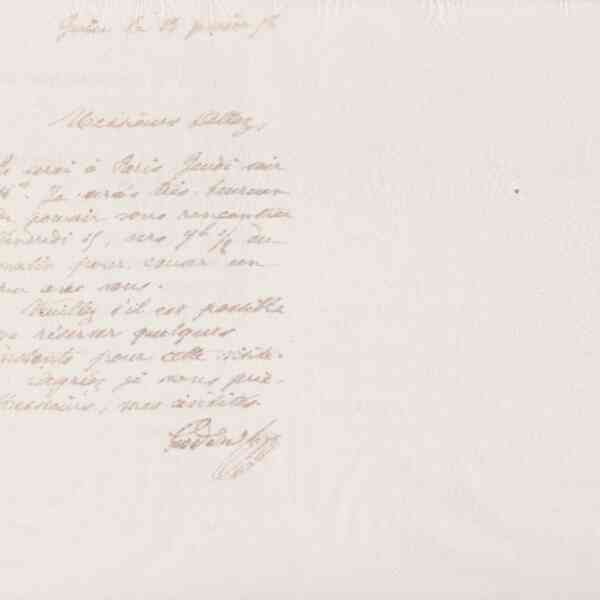 Guise le
Monsieur
serai à Paris Jeudi soir
Je serais très heureux
de pouvoir vous rencontrer
Vendredi 15, vers 9h 1/2 du
matin pour causer un
peu avec vous.
Veuillez s'il est possible
me réserver quelques
instants pour cette visite.
et agréez je vous prie
Monsieur, mes civilités
Godin